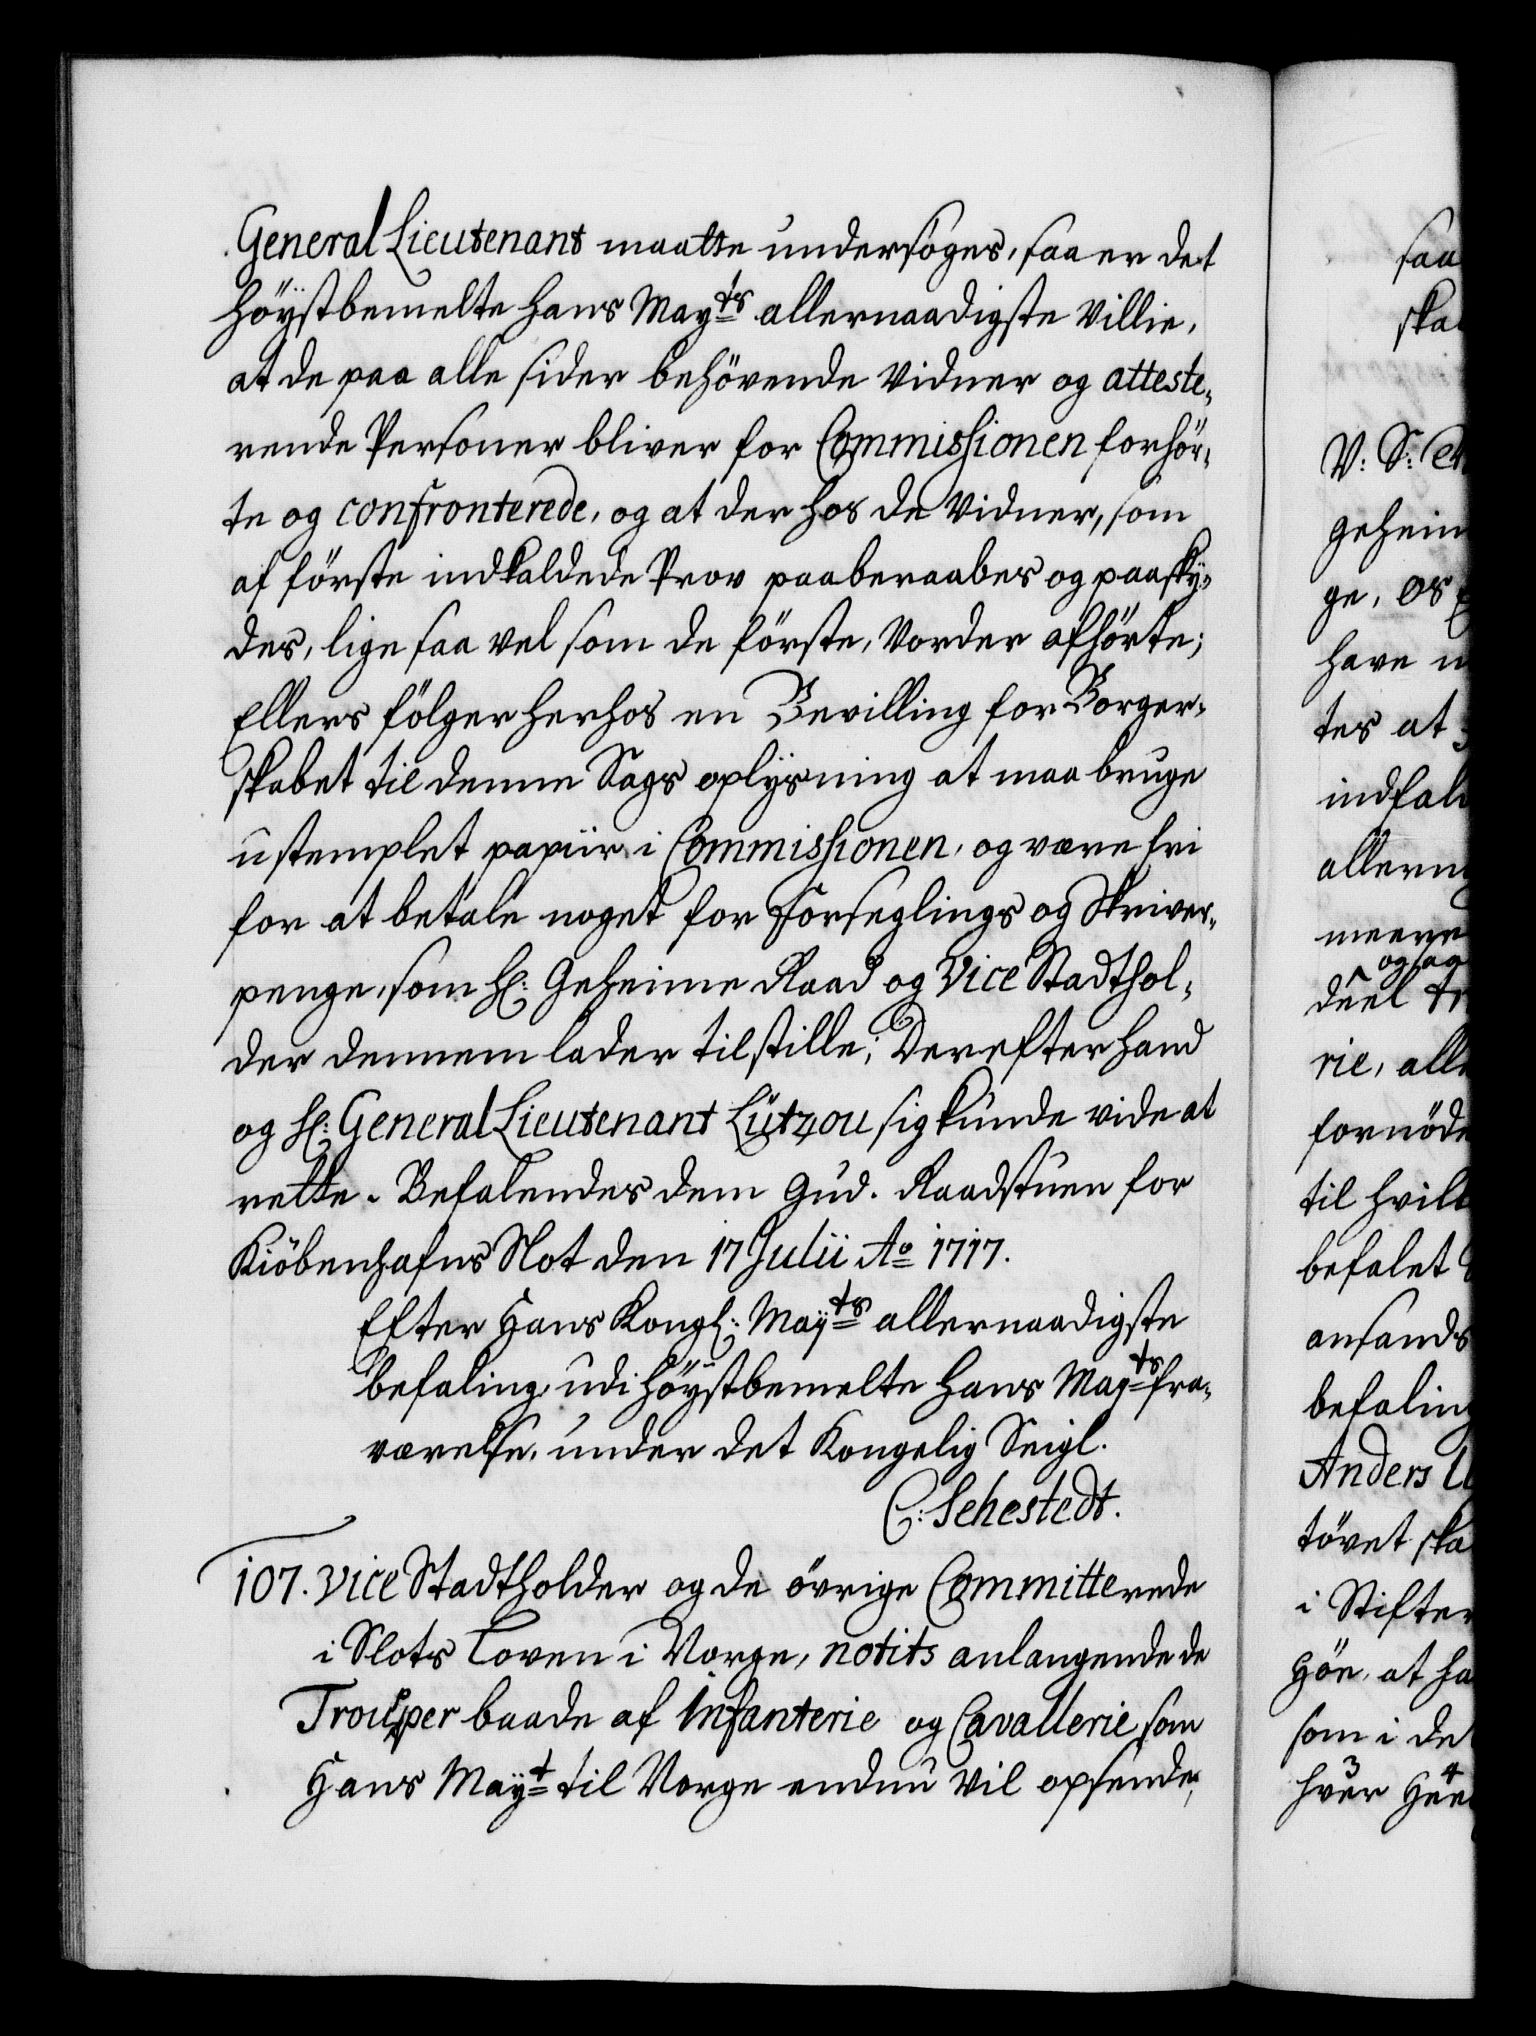 General Lieutenant maatte undersøges, saa er det
höystbemelte hans May^ts allernaadigste Villie,
at de paa alle sider behövende Vidner og atteste-
rende Personer bliver for Commissionen forhör-
te og confronterede, og at der hos de Vidner, som
af förste indkaldede Prov paaberaabes og paasky-
des, lige saa vel som de förste, Vorder afhörte;
Ellers fölger herhos en Bevilling for Borger-
skabet til denne Sags oplysning at maa bruge
ustemplet papiir i Commissionen, og være fri
for at betale noget for Forseglings og Skriver-
penge, som H: Geheime Raad og Vice Stadthol-
der dennem lader tilstille; Derefter hand
og H: General Lieutenant Lützou sig kunde vide at
rette. Befalendes dem Gud. Raadstuen for
Kiöbenhafns Slot den 17 Julii Ao 1717.
Efter Hans Kongl: May^ts allernaadigste
befaling, udi höystbemelte hans May^ts fra-
værelse, under det Kongelig Seigl.
C: Sehestedt.
107. Vice Stadtholder og de övrige Committerede
i Slots Loven i Norge, notits anlangende de
Troupper baade af Infanterie og Cavallerie som
Hans May^t til Norge endnu Vil opsende,
saa
ska
V: S:
geheim
ge, os
have
tes at
indfal
allern
meere
ogsaa
deel
rie, alle
fornöde
til hvilk
befalet
ansands
befaling
Anders
tövet ska
i Stifter
Höe, at ha
som i de
hver